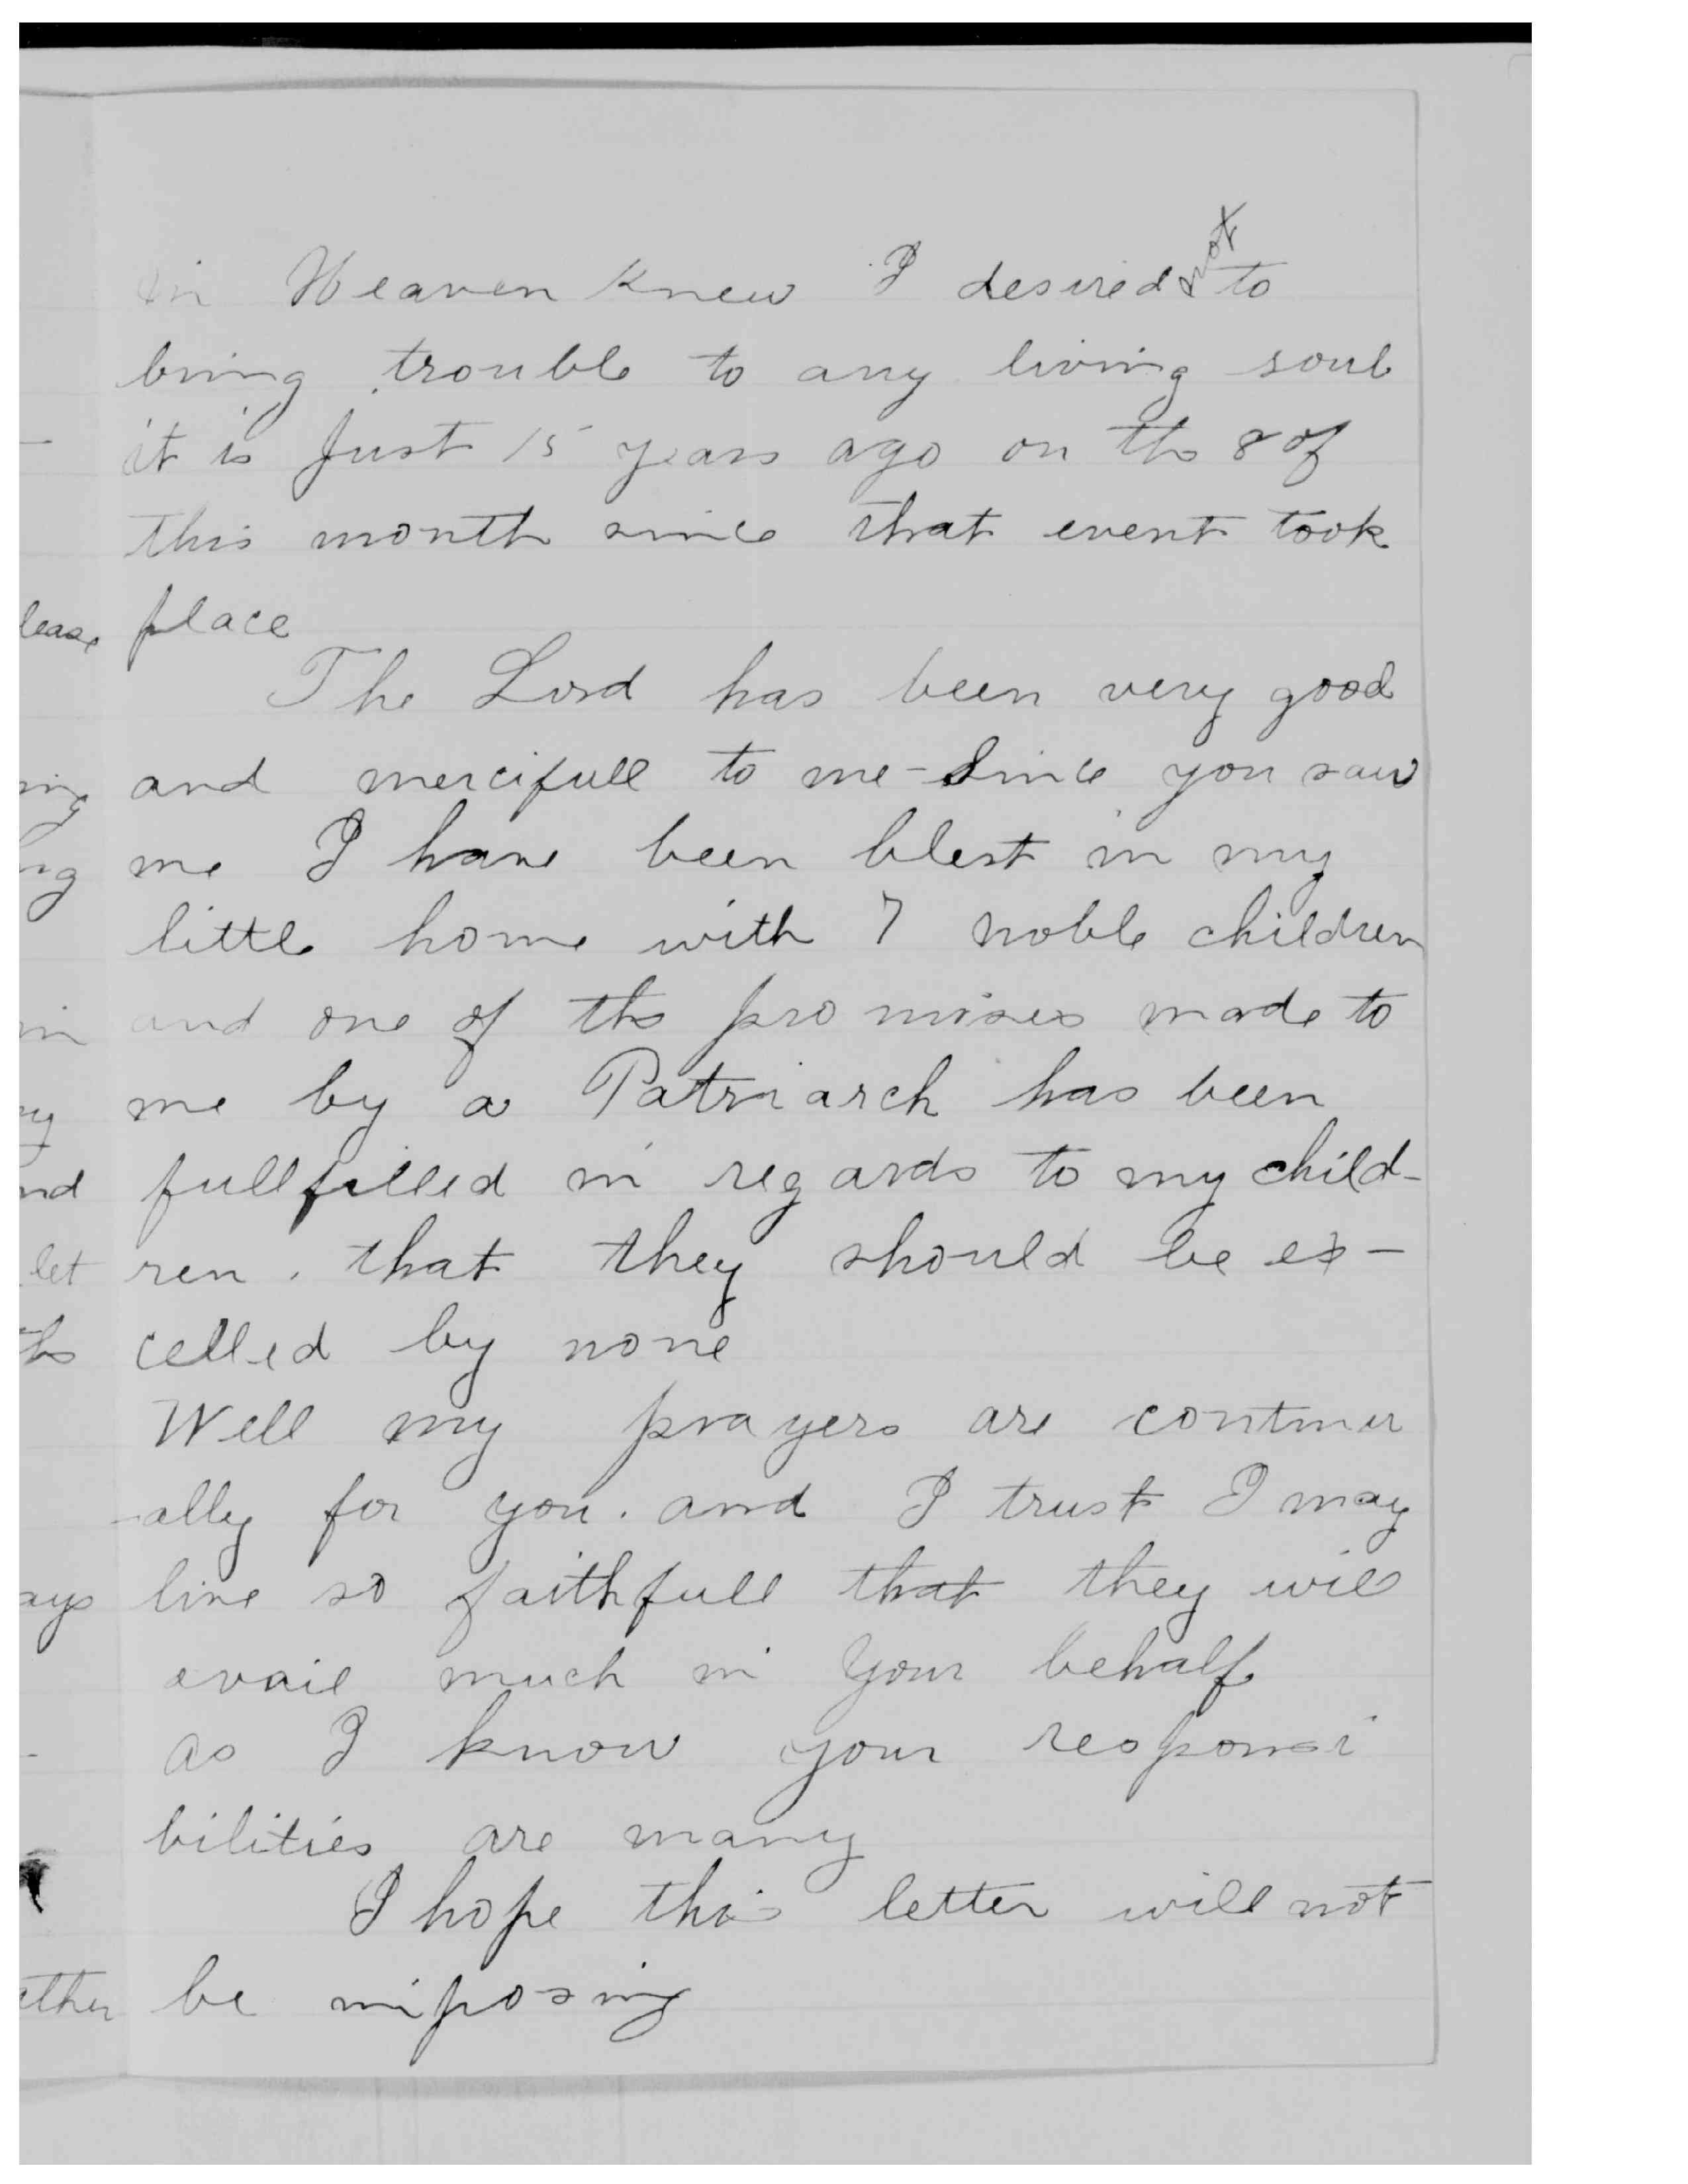 in Heaven knew I desired not to
bring trouble to any living soul
it is Just 15 years ago on the 8 of
this month since that event took
place
The Lord has been very good
and mercifull to me - Since you saw
me I have been blest in my
little home with 7 noble children
and one of the promises made to
me by a Patriarch has been
fullfilled in regards to my child-
ren. that they should be ex-
celled by none
Well my prayers are continu
-ally for you. and I trust I may
live so faithfull that they will
avail much in Your behalf
as I know your responsi
bilities are many
I hope this letter will not
be imposing
lease
ing
ng
in
ry
nd
let
ths
ays
ther